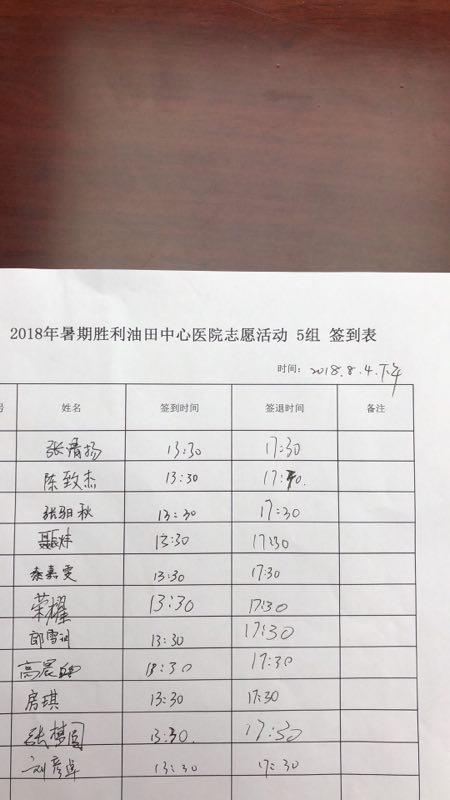 2018年暑期胜利油田中心医院志愿活动 5组 签到表
时间: 2018.8.4.下午
号 姓名 签到时间 签退时间 备注
张清扬 13:30 17:30
陈致杰 13:30 17:30.
张珀秋 13:30 17:30
聂炜 13:30 17:30
秦嘉雯 13:30 17:30
荣耀 13:30 17:30
郎雪 13:30 17:30
高晨 13:30 17:30
房琪 13:30 17:30
张梦圆 13:30. 17:30
刘彦卓 13:30 17:30